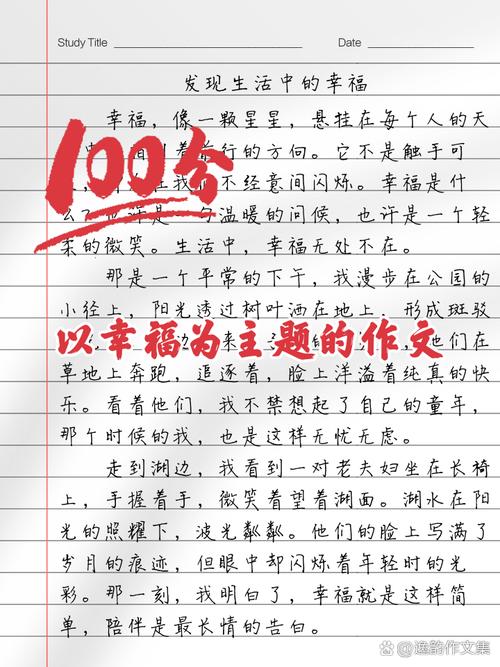 Study Title Date
发现生活中的幸福
幸福，像一颗星星，悬挂在每个人的天
着前行的方向。它不是触手可
100分
不经意间闪烁。幸福是什
一句温暖的问候，也许是一个轻
柔的微笑。生活中，幸福无处不在。
那是一个平常的下午，我漫步在公园的
小径上，阳光透过树叶洒在地上，形成斑驳
以幸福为主题的作文
们在
草地上奔跑，追逐着，脸上洋溢着纯真的快
乐。看着他们，我不禁想起了自己的童年，
那个时候的我，也是这样无忧无虑。
走到湖边，我看到一对老夫妇坐在长椅
上，手握着手，微笑着望着湖面。湖水在阳
光的照耀下，波光粼粼。他们的脸上写满了
岁月的痕迹，但眼中却闪烁着年轻时的光
彩。那一刻，我明白了，幸福就是这样简
单，陪伴是最长情的告白。
逸韵作文集